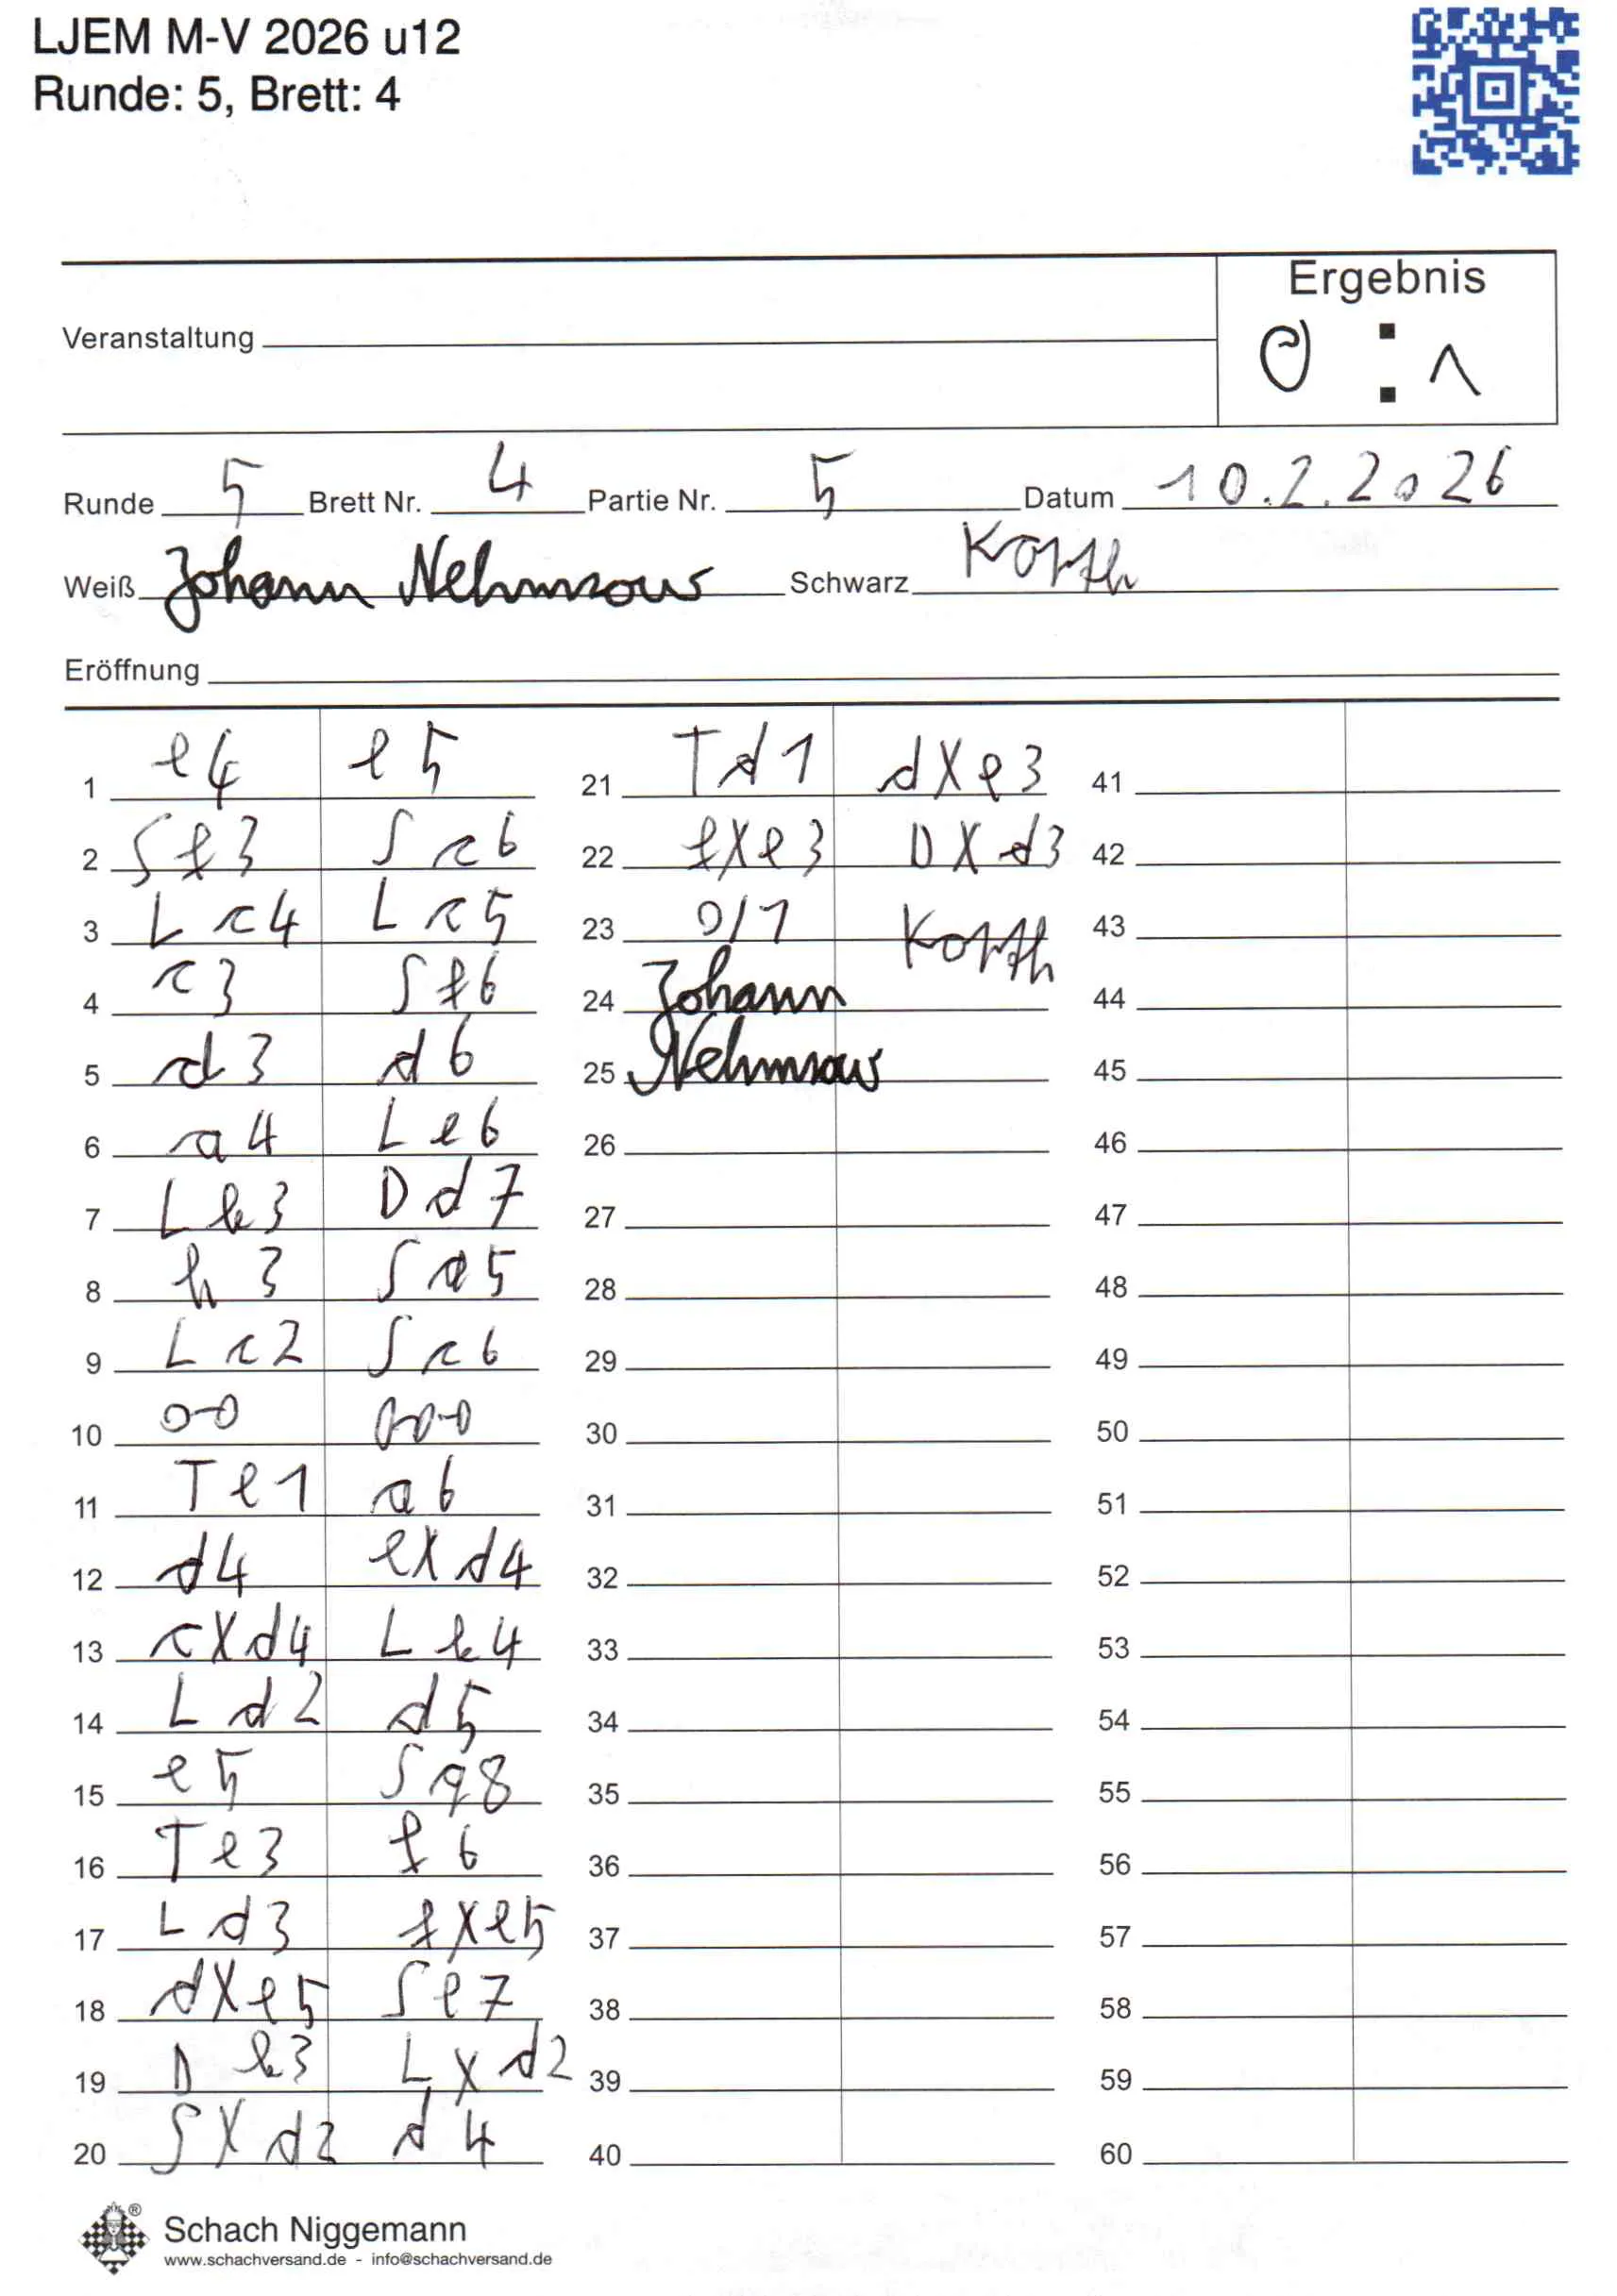 LJEM M-V 2026 u12
Runde: 5, Brett: 4
Ergebnis
0 : 1
Veranstaltung
Runde 5 Brett Nr. 4 Partie Nr. 5 Datum 10.2.2026
Weiß Johann Nehmsow Schwarz Korth
Eröffnung
1 e4 e5
2 Sf3 Sc6
3 Lc4 Lc5
4 c3 Sf6
5 d3 d6
6 a4 Le6
7 Lb3 Dd7
8 h3 Sa5
9 Lc2 Sc6
10 0-0 0-0-0
11 Te1 a6
12 d4 exd4
13 cxd4 Lb4
14 Ld2 d5
15 e5 Sg8
16 Te3 f6
17 Ld3 fxe5
18 dxe5 Se7
19 Db3 Lxd2
20 Sxd2 d4
21 Td1 dxe3
22 fxe3 Dxd3
23 0/1 Korth
24 Johann
25 Nehmsow
26
27
28
29
30
31
32
33
34
35
36
37
38
39
40
41
42
43
44
45
46
47
48
49
50
51
52
53
54
55
56
57
58
59
60
® Schach Niggemann
www.schachversand.de - info@schachversand.de